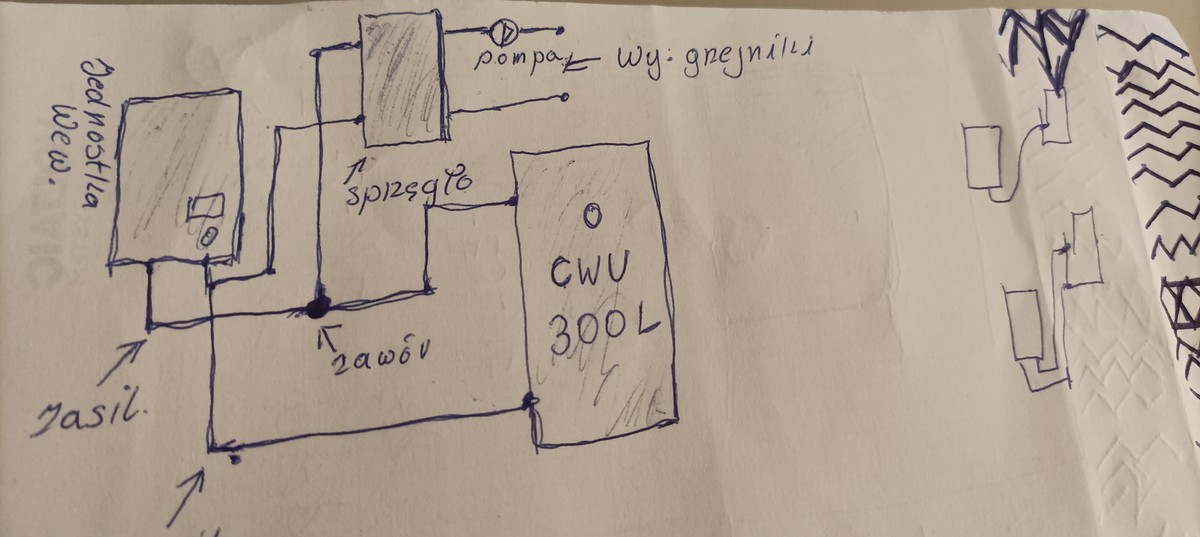 Jednostka
Wew.
pompa
Wy: grzejniki
sprzęgło
CWU
300L
zawór
Zasil.